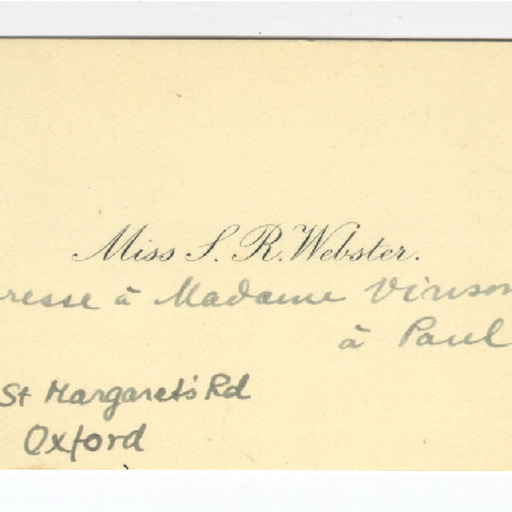 Miss S. R. Webster.
resse à Madame Vinson
à Paul
St Margaret's Rd
Oxford